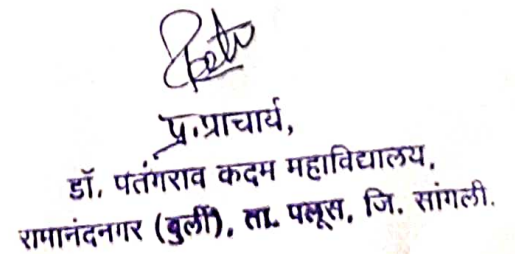 प्र.प्राचार्य,
डॉ. पतंगराव कदम महाविद्यालय,
रामानंदनगर (बुर्ली), ता. पलूस, जि. सांगली.